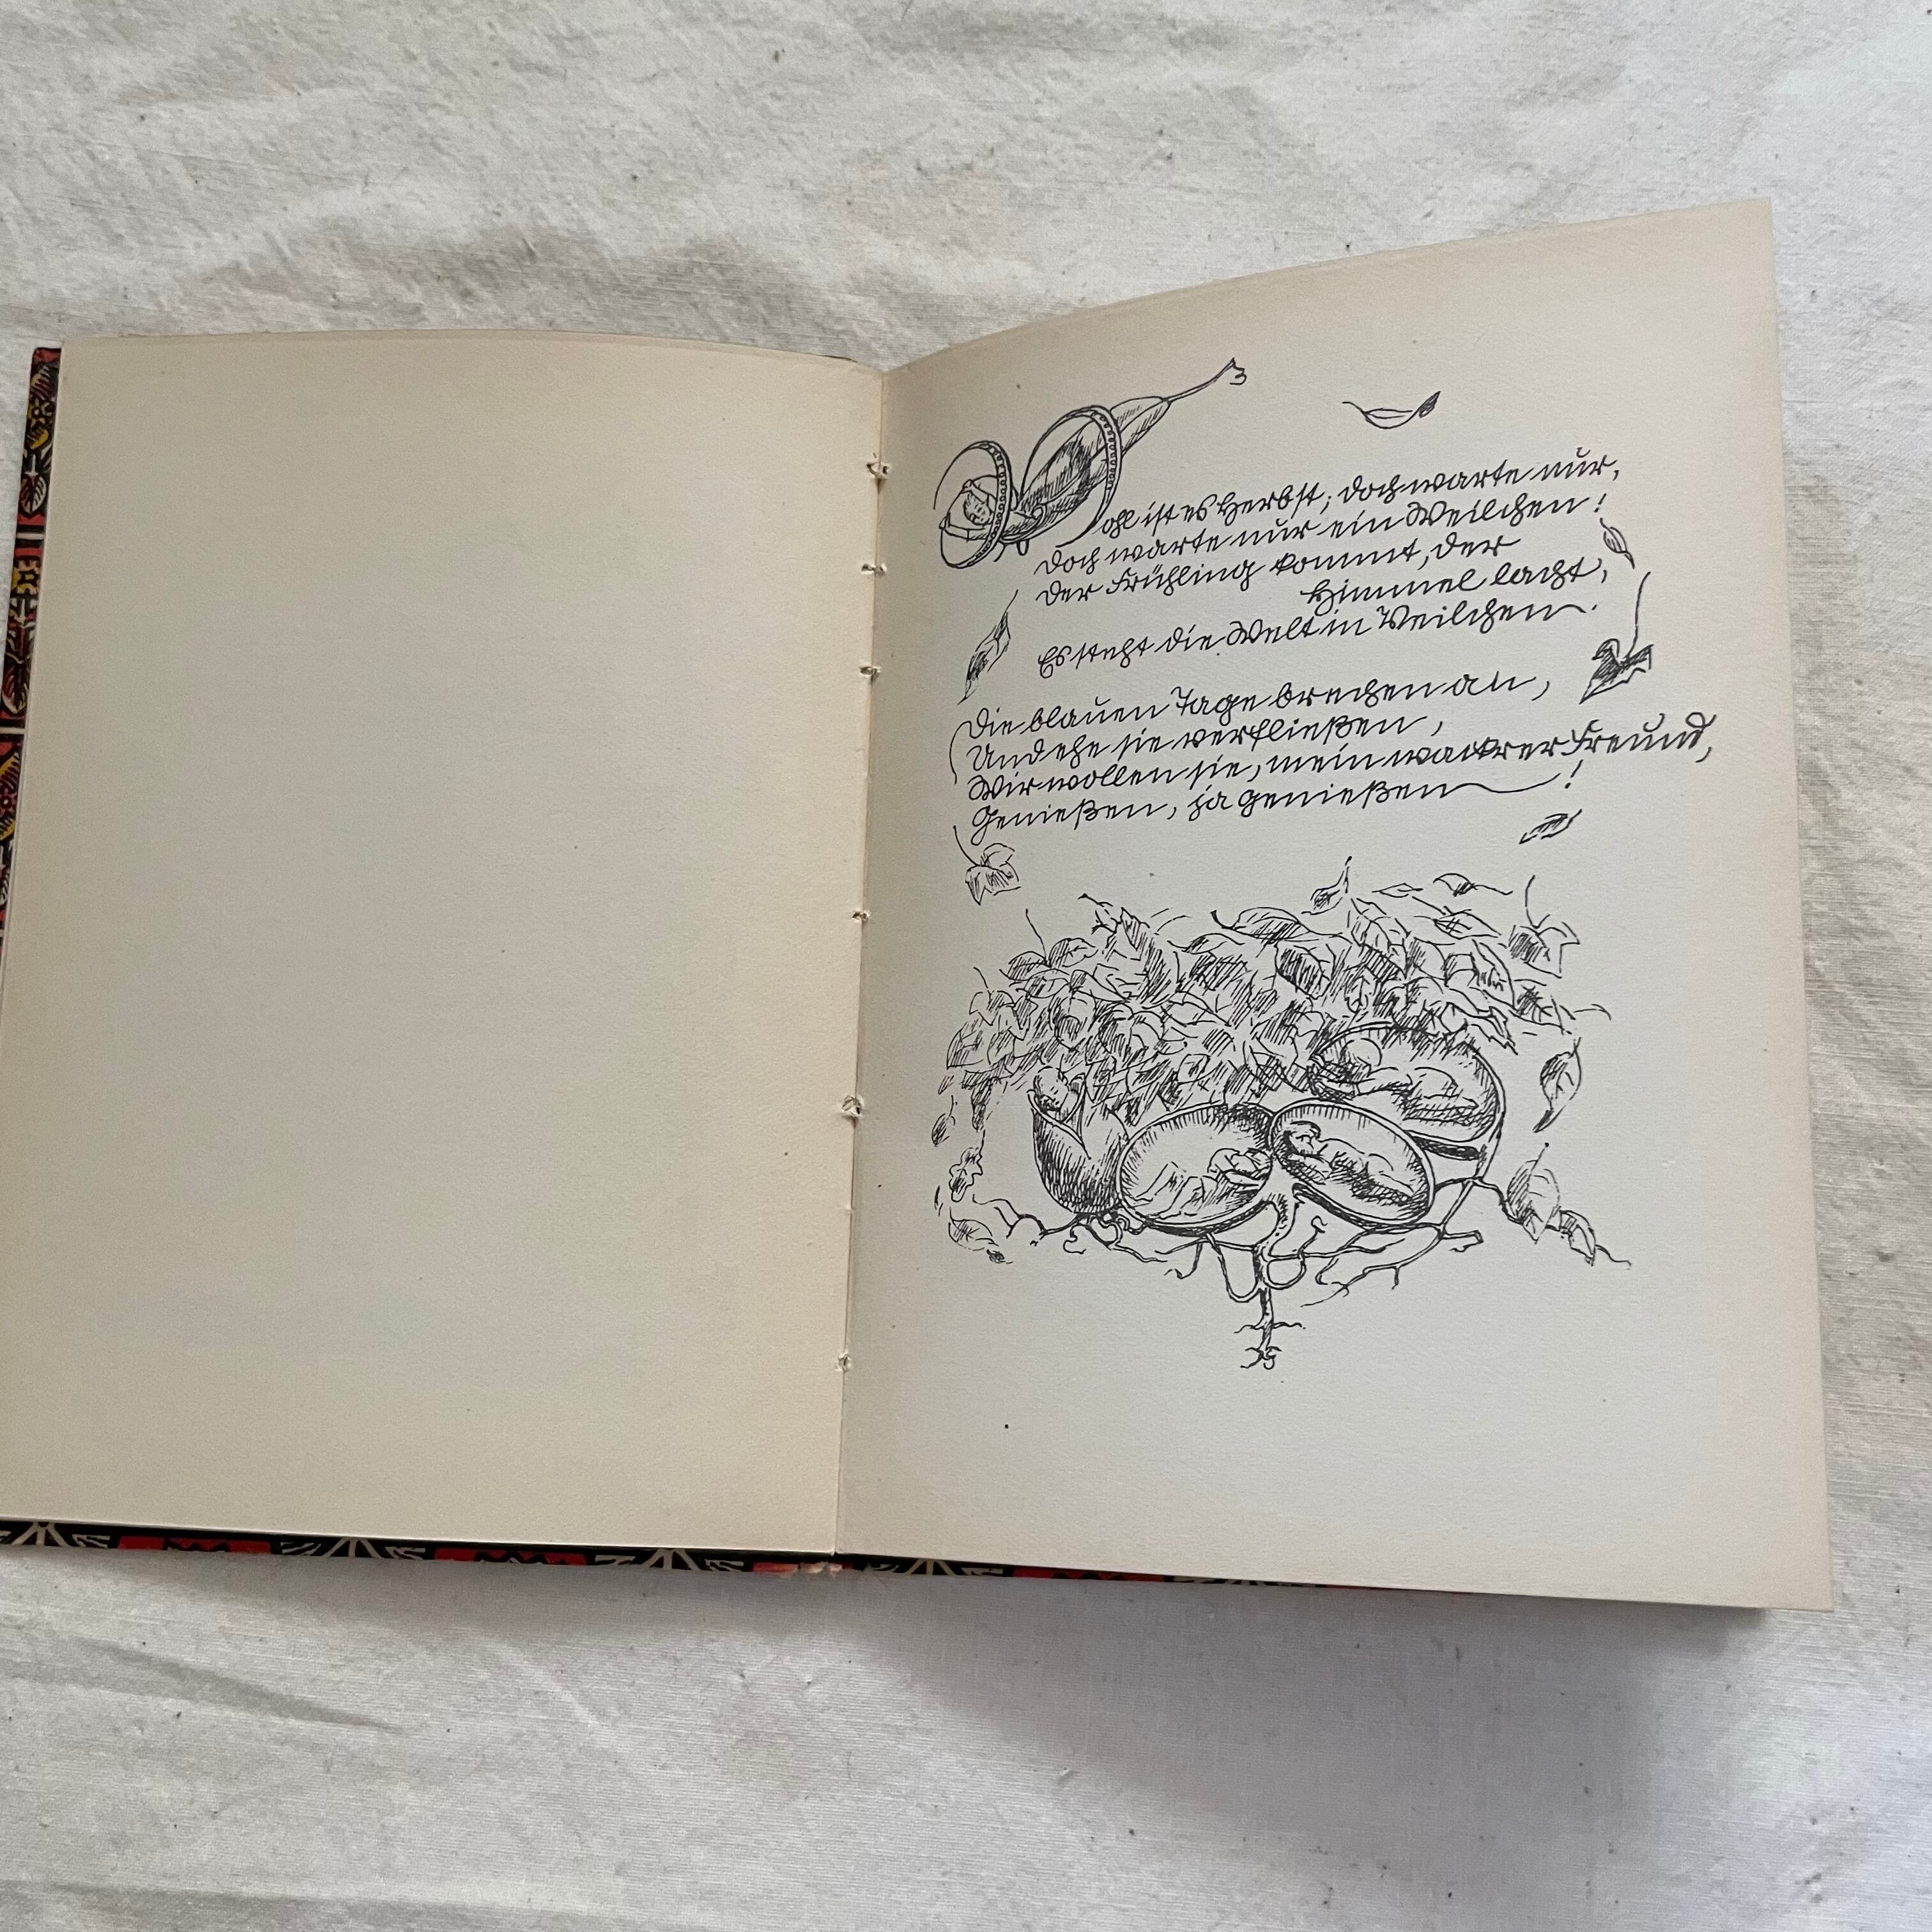 Wohl ist es Herbst; doch warte nur,
doch warte nur ein Weilchen!
Der Frühling kommt, der
Himmel lacht,
Es steht die Welt in Veilchen.
Die blauen Tage brechen an,
Und ehe sie verfließen,
Wir wollen sie, mein wackrer Freund,
Genießen, ja genießen!